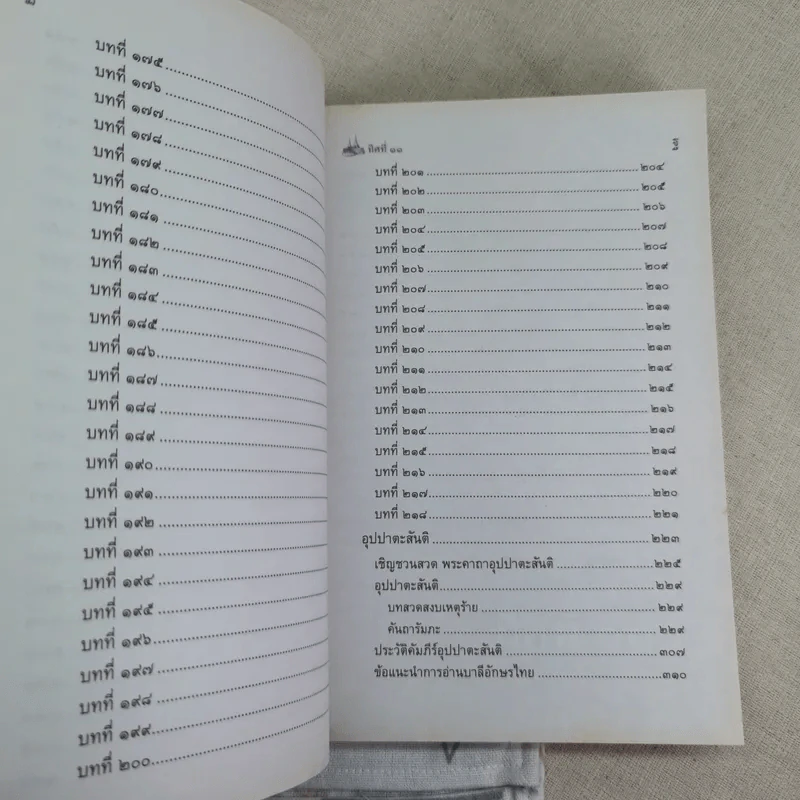 บทที่ ๑๗๕
บทที่ ๑๗๖
บทที่ ๑๗๗
บทที่ ๑๗๘
บทที่ ๑๗๙
บทที่ ๑๘๐
บทที่ ๑๘๑
บทที่ ๑๘๒
บทที่ ๑๘๓
บทที่ ๑๘๔
บทที่ ๑๘๕
บทที่ ๑๘๖
บทที่ ๑๘๗
บทที่ ๑๘๘
บทที่ ๑๘๙
บทที่ ๑๙๐
บทที่ ๑๙๑
บทที่ ๑๙๒
บทที่ ๑๙๓
บทที่ ๑๙๔
บทที่ ๑๙๕
บทที่ ๑๙๖
บทที่ ๑๙๗
บทที่ ๑๙๘
บทที่ ๑๙๙
บทที่ ๒๐๐
ทิศที่ ๑๑
บทที่ ๒๐๑ ๒๐๔
บทที่ ๒๐๒ ๒๐๕
บทที่ ๒๐๓ ๒๐๖
บทที่ ๒๐๔ ๒๐๗
บทที่ ๒๐๕ ๒๐๘
บทที่ ๒๐๖ ๒๐๙
บทที่ ๒๐๗ ๒๑๐
บทที่ ๒๐๘ ๒๑๑
บทที่ ๒๐๙ ๒๑๒
บทที่ ๒๑๐ ๒๑๓
บทที่ ๒๑๑ ๒๑๔
บทที่ ๒๑๒ ๒๑๕
บทที่ ๒๑๓ ๒๑๖
บทที่ ๒๑๔ ๒๑๗
บทที่ ๒๑๕ ๒๑๘
บทที่ ๒๑๖ ๒๑๙
บทที่ ๒๑๗ ๒๒๐
บทที่ ๒๑๘ ๒๒๑
อุปปาตะสันติ ๒๒๓
เชิญชวนสวด พระคาถาอุปปาตะสันติ ๒๒๕
อุปปาตะสันติ ๒๒๙
บทสวดสงบเหตุร้าย ๒๒๙
คันถารัมภะ ๒๒๙
ประวัติคัมภีร์อุปปาตะสันติ ๓๐๗
ข้อแนะนำการอ่านบาลีอักษรไทย ๓๑๐